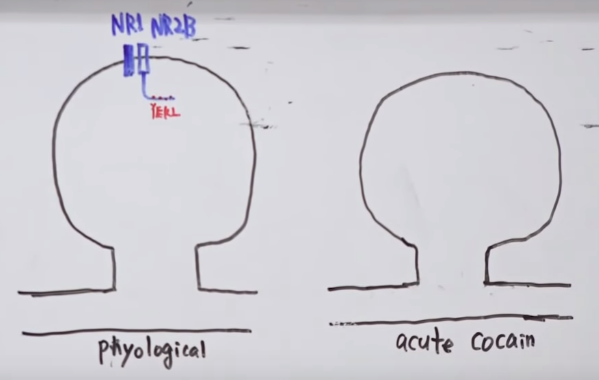 NR1 NR2B
YEKL
phyological
acute cocain